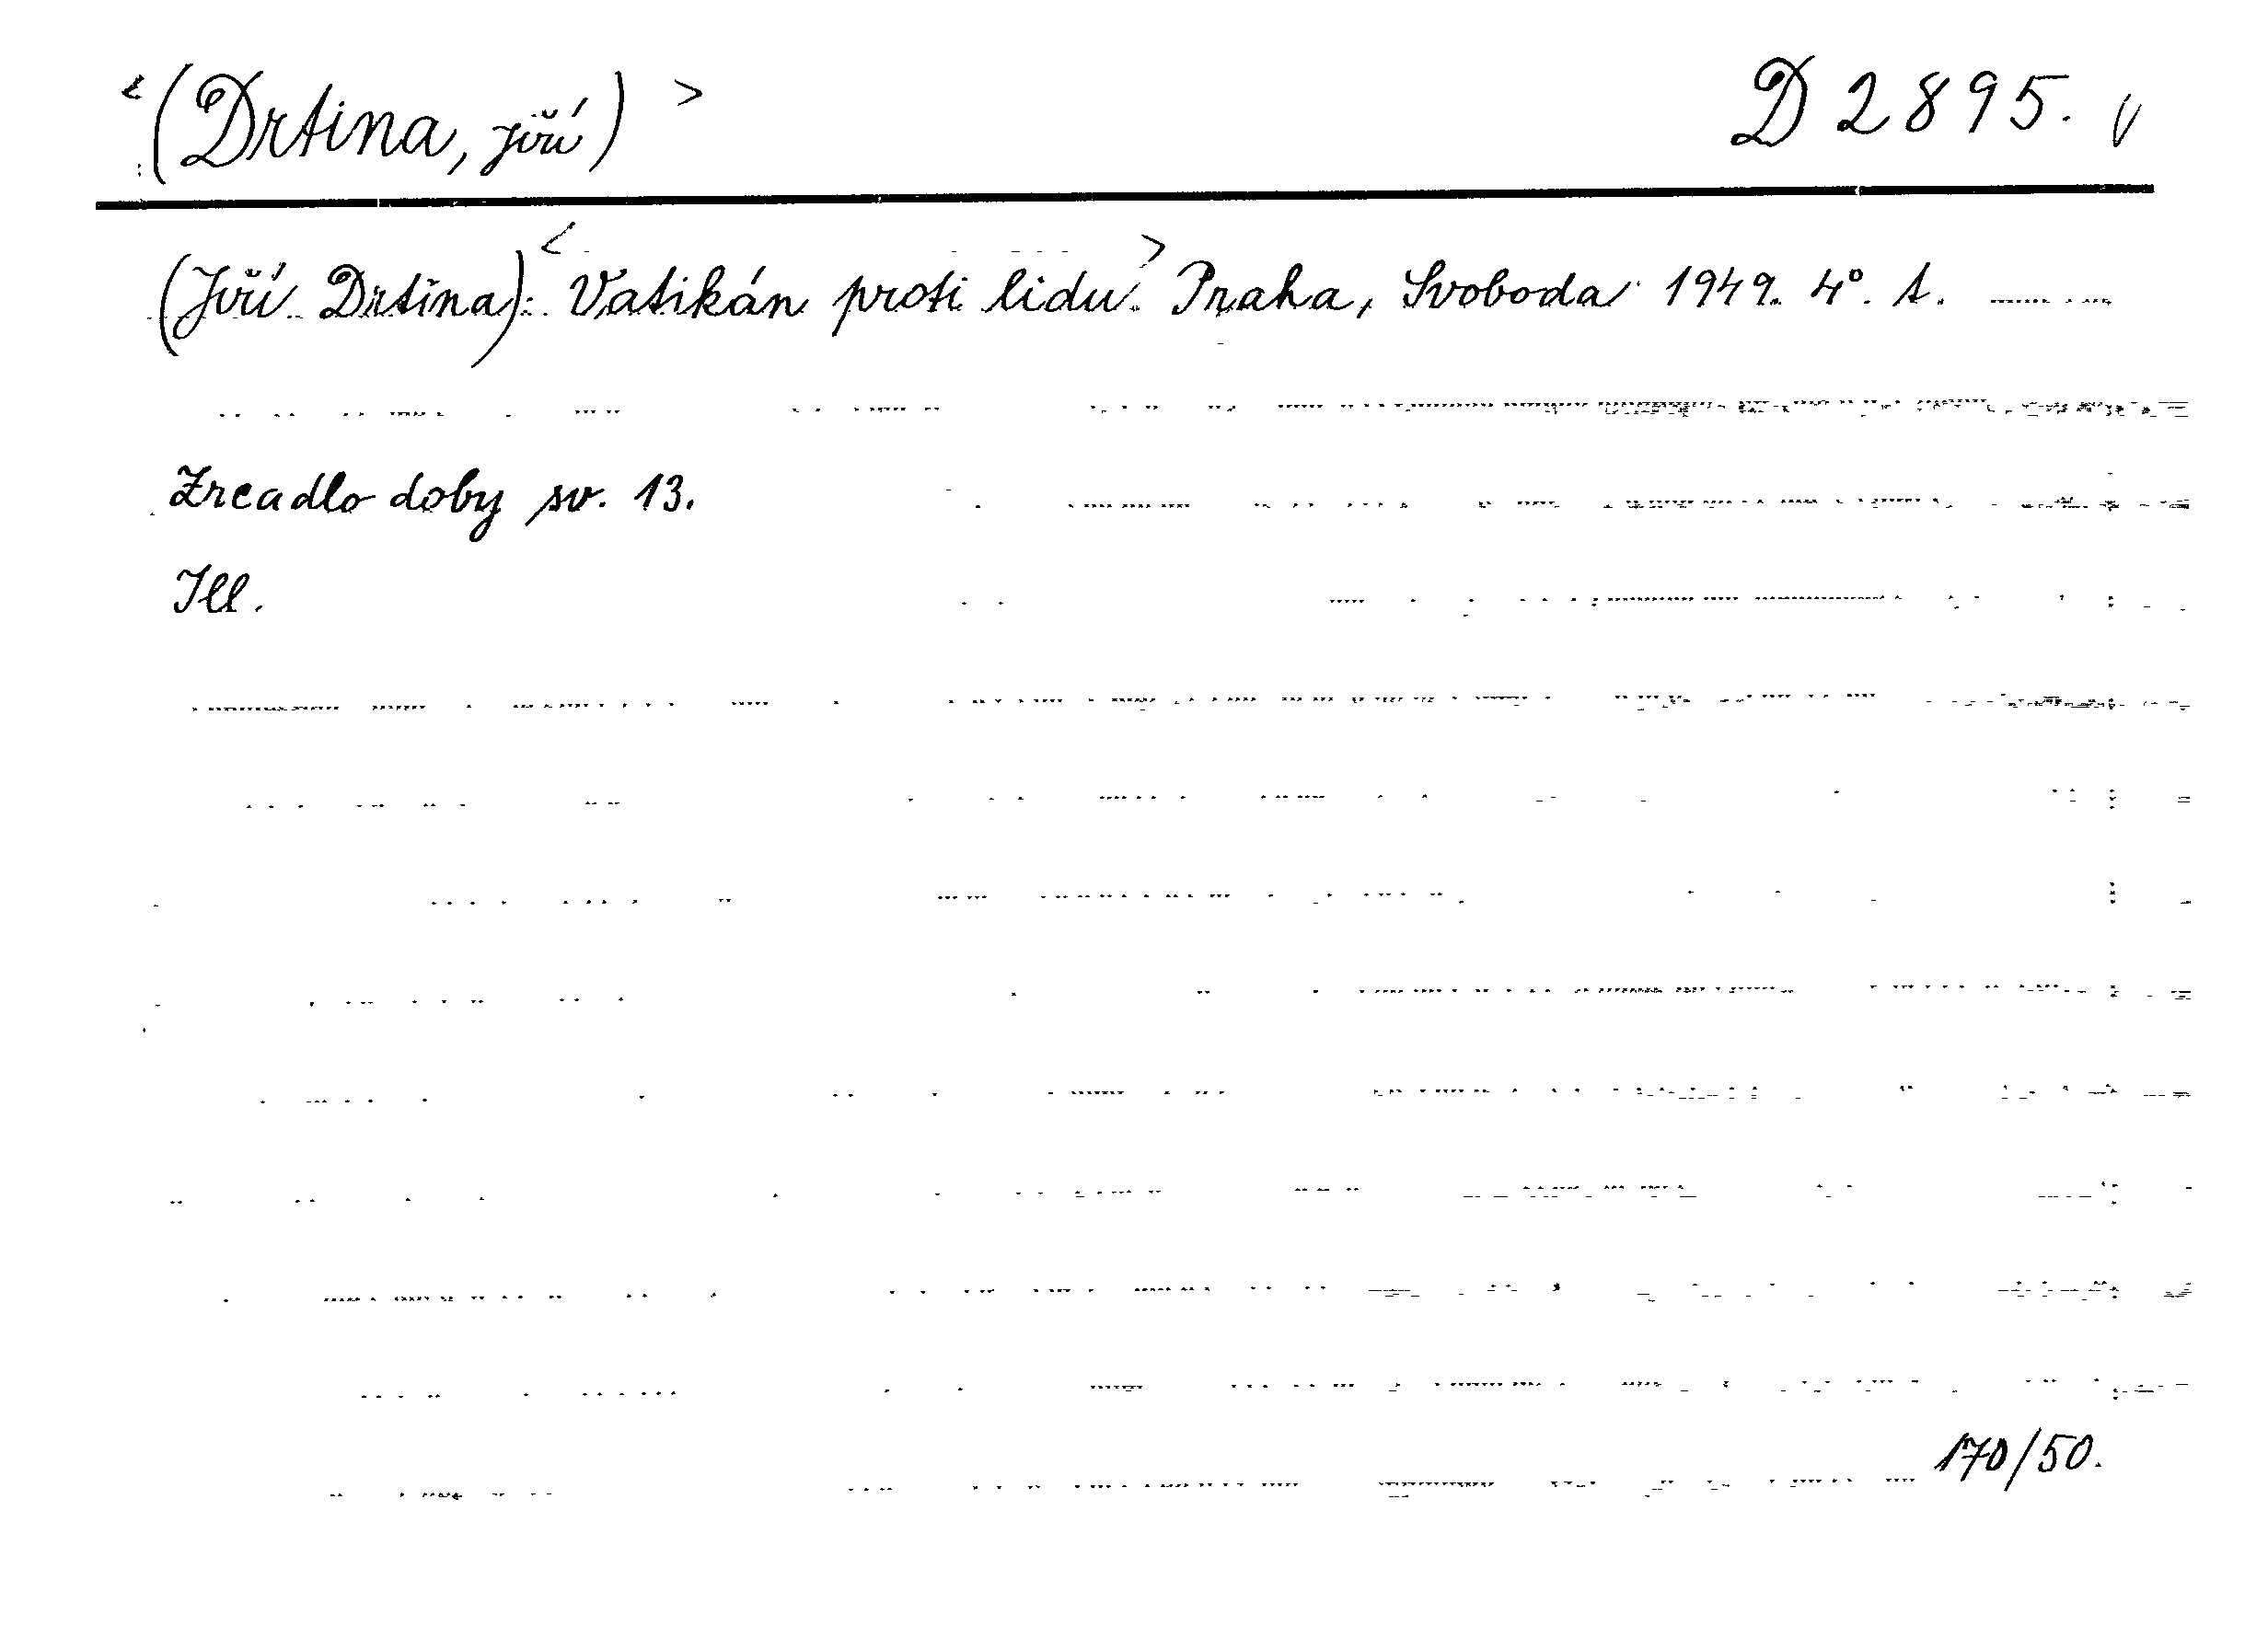 <(Drtina, Jiří)> D 2895. v
(Jiří Drtina): <Vatikán proti lidu.> Praha, Svoboda 1949. 4°. 1.
Zrcadlo doby sv. 13.
Ill.
170/50.